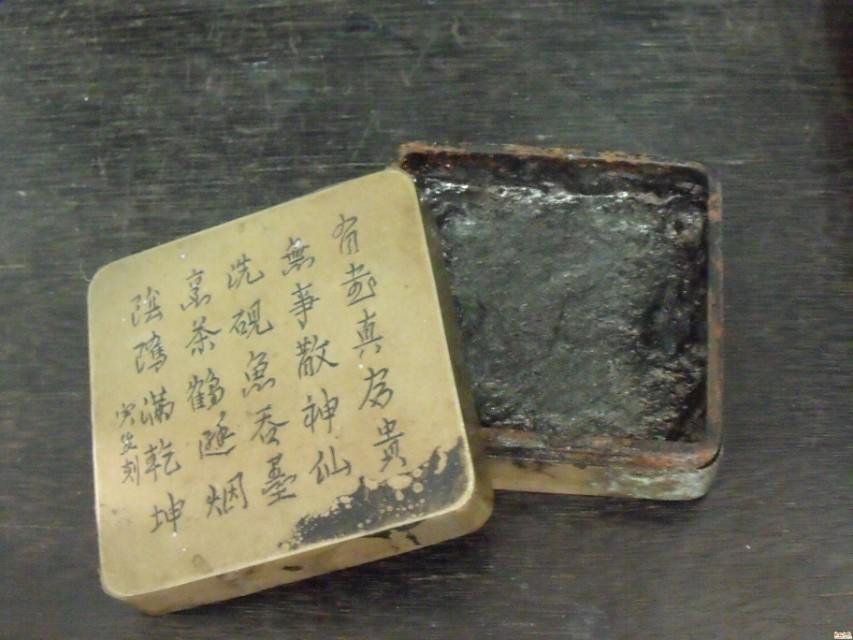 有書真富貴
無事散神仙
洗硯魚吞墨
烹茶鶴避烟
陰隲滿乾坤
寅生刻